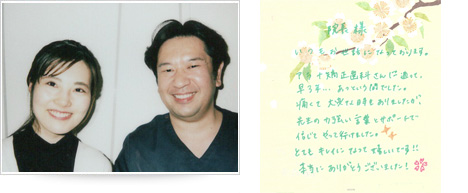 院長様
いつもお世話になっております。
矯正歯科さんに通って、
早3年…あっという間でした。
痛くて大変な日々もありましたが、
先生の力強い言葉とサポートで
信じてやって行けました。
とてもキレイになって嬉しいです!!
本当にありがとうございました!